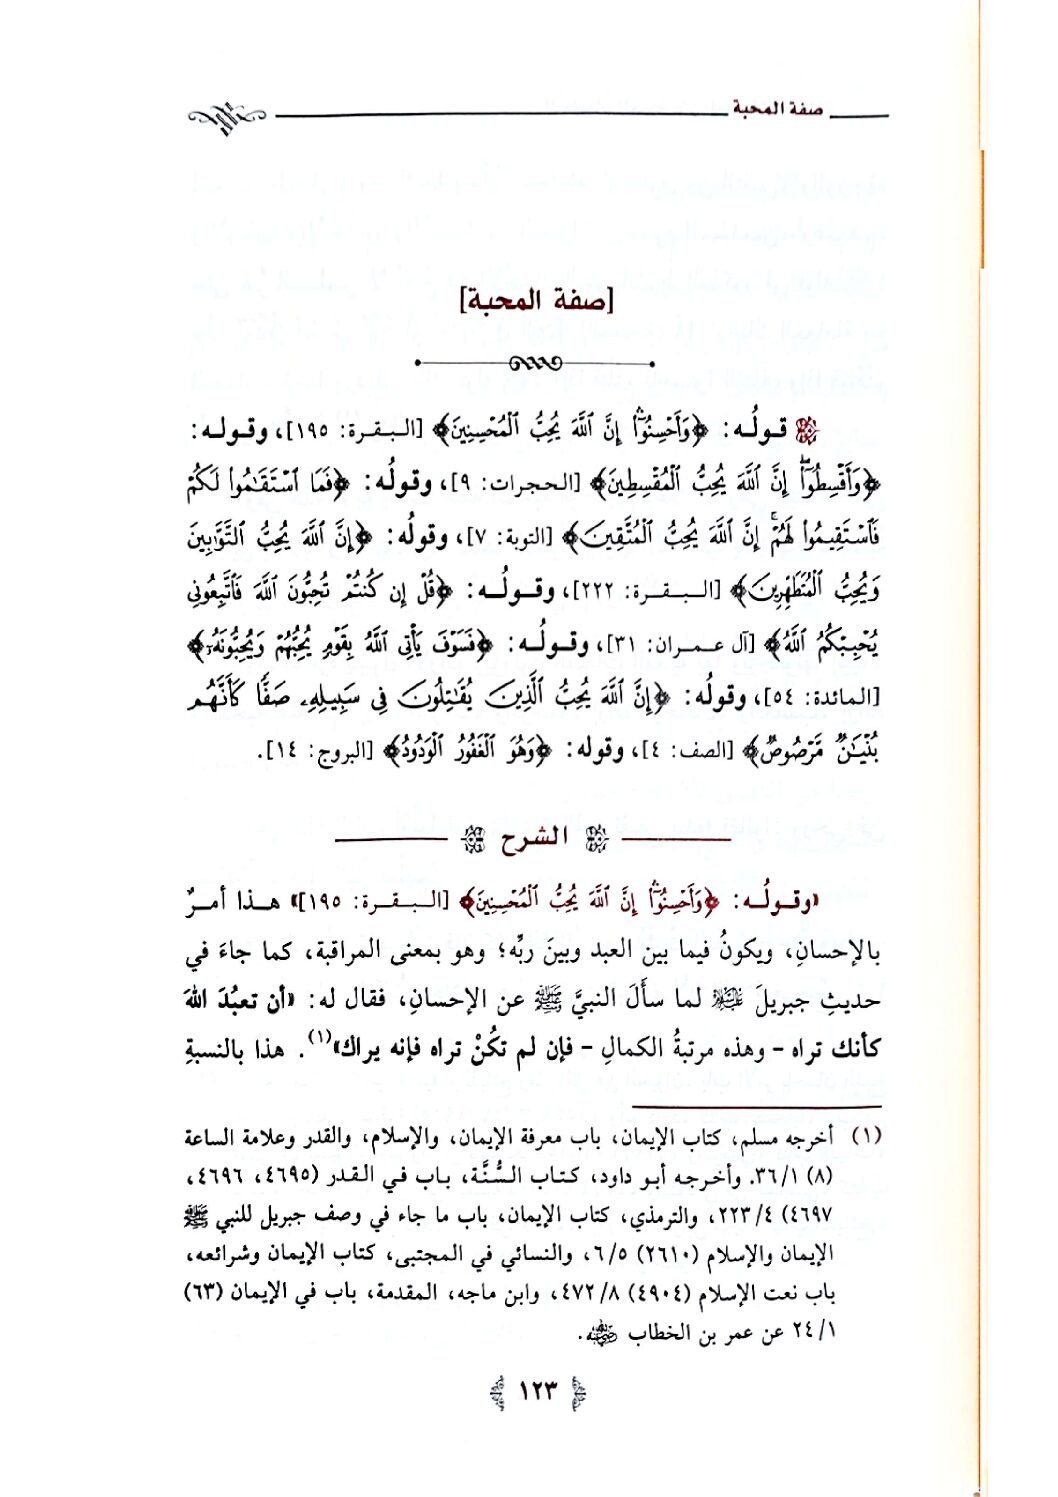 صفة المحبة
[صفة المحبة]
قولُه: ﴿وَأَحْسِنُوٓا۟ إِنَّ ٱللَّهَ يُحِبُّ ٱلْمُحْسِنِينَ﴾ [البقرة: ١٩٥]، وقوله:
﴿وَأَقْسِطُوٓا۟ إِنَّ ٱللَّهَ يُحِبُّ ٱلْمُقْسِطِينَ﴾ [الحجرات: ٩]، وقولُه: ﴿فَمَا ٱسْتَقَٰمُوا۟ لَكُمْ
فَٱسْتَقِيمُوا۟ لَهُمْ إِنَّ ٱللَّهَ يُحِبُّ ٱلْمُتَّقِينَ﴾ [التوبة: ٧]، وقولُه: ﴿إِنَّ ٱللَّهَ يُحِبُّ ٱلتَّوَّٰبِينَ
وَيُحِبُّ ٱلْمُتَطَهِّرِينَ﴾ [البقرة: ٢٢٢]، وقولُه: ﴿قُلْ إِن كُنتُمْ تُحِبُّونَ ٱللَّهَ فَٱتَّبِعُونِى
يُحْبِبْكُمُ ٱللَّهُ﴾ [آل عمران: ٣١]، وقولُه: ﴿فَسَوْفَ يَأْتِى ٱللَّهُ بِقَوْمٍ يُحِبُّهُمْ وَيُحِبُّونَهُۥٓ﴾
[المائدة: ٥٤]، وقولُه: ﴿إِنَّ ٱللَّهَ يُحِبُّ ٱلَّذِينَ يُقَٰتِلُونَ فِى سَبِيلِهِۦ صَفًّا كَأَنَّهُم
بُنْيَٰنٌ مَّرْصُوصٌ﴾ [الصف: ٤]، وقوله: ﴿وَهُوَ ٱلْغَفُورُ ٱلْوَدُودُ﴾ [البروج: ١٤].
الشرح
«وقولُه: ﴿وَأَحْسِنُوٓا۟ إِنَّ ٱللَّهَ يُحِبُّ ٱلْمُحْسِنِينَ﴾ [البقرة: ١٩٥]» هذا أمرٌ
بالإحسانِ، ويكونُ فيما بين العبد وبينَ ربِّه؛ وهو بمعنى المراقبة، كما جاءَ في
حديثِ جبريلَ عليه السلام لما سأَلَ النبيَّ ﷺ عن الإحسانِ، فقال له: «أن تعبُدَ اللهَ
كأنك تراه - وهذه مرتبةُ الكمالِ - فإن لم تكُنْ تراه فإنه يراك»(١). هذا بالنسبةِ
(١) أخرجه مسلم، كتاب الإيمان، باب معرفة الإيمان، والإسلام، والقدر وعلامة الساعة
(٨) ٣٦/١. وأخرجه أبو داود، كتاب السُّنَّة، باب في القدر (٤٦٩٥، ٤٦٩٦،
٤٦٩٧) ٢٢٣/٤، والترمذي، كتاب الإيمان، باب ما جاء في وصف جبريل للنبي ﷺ
الإيمان والإسلام (٢٦١٠) ٦/٥، والنسائي في المجتبى، كتاب الإيمان وشرائعه،
باب نعت الإسلام (٤٩٠٤) ٤٧٢/٨، وابن ماجه، المقدمة، باب في الإيمان (٦٣)
٢٤/١ عن عمر بن الخطاب رضي الله عنه.
١٢٣